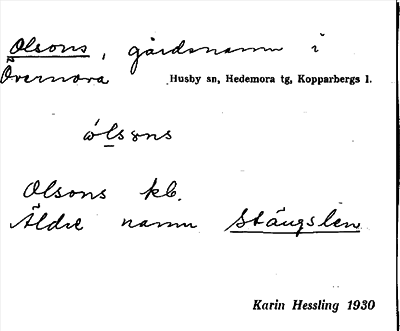 Olsons, gårdsnamn i
Övernora Husby sn, Hedemora tg, Kopparbergs l.
Olsons kb.
Äldre namn Stängslen
Karin Hessling 1930